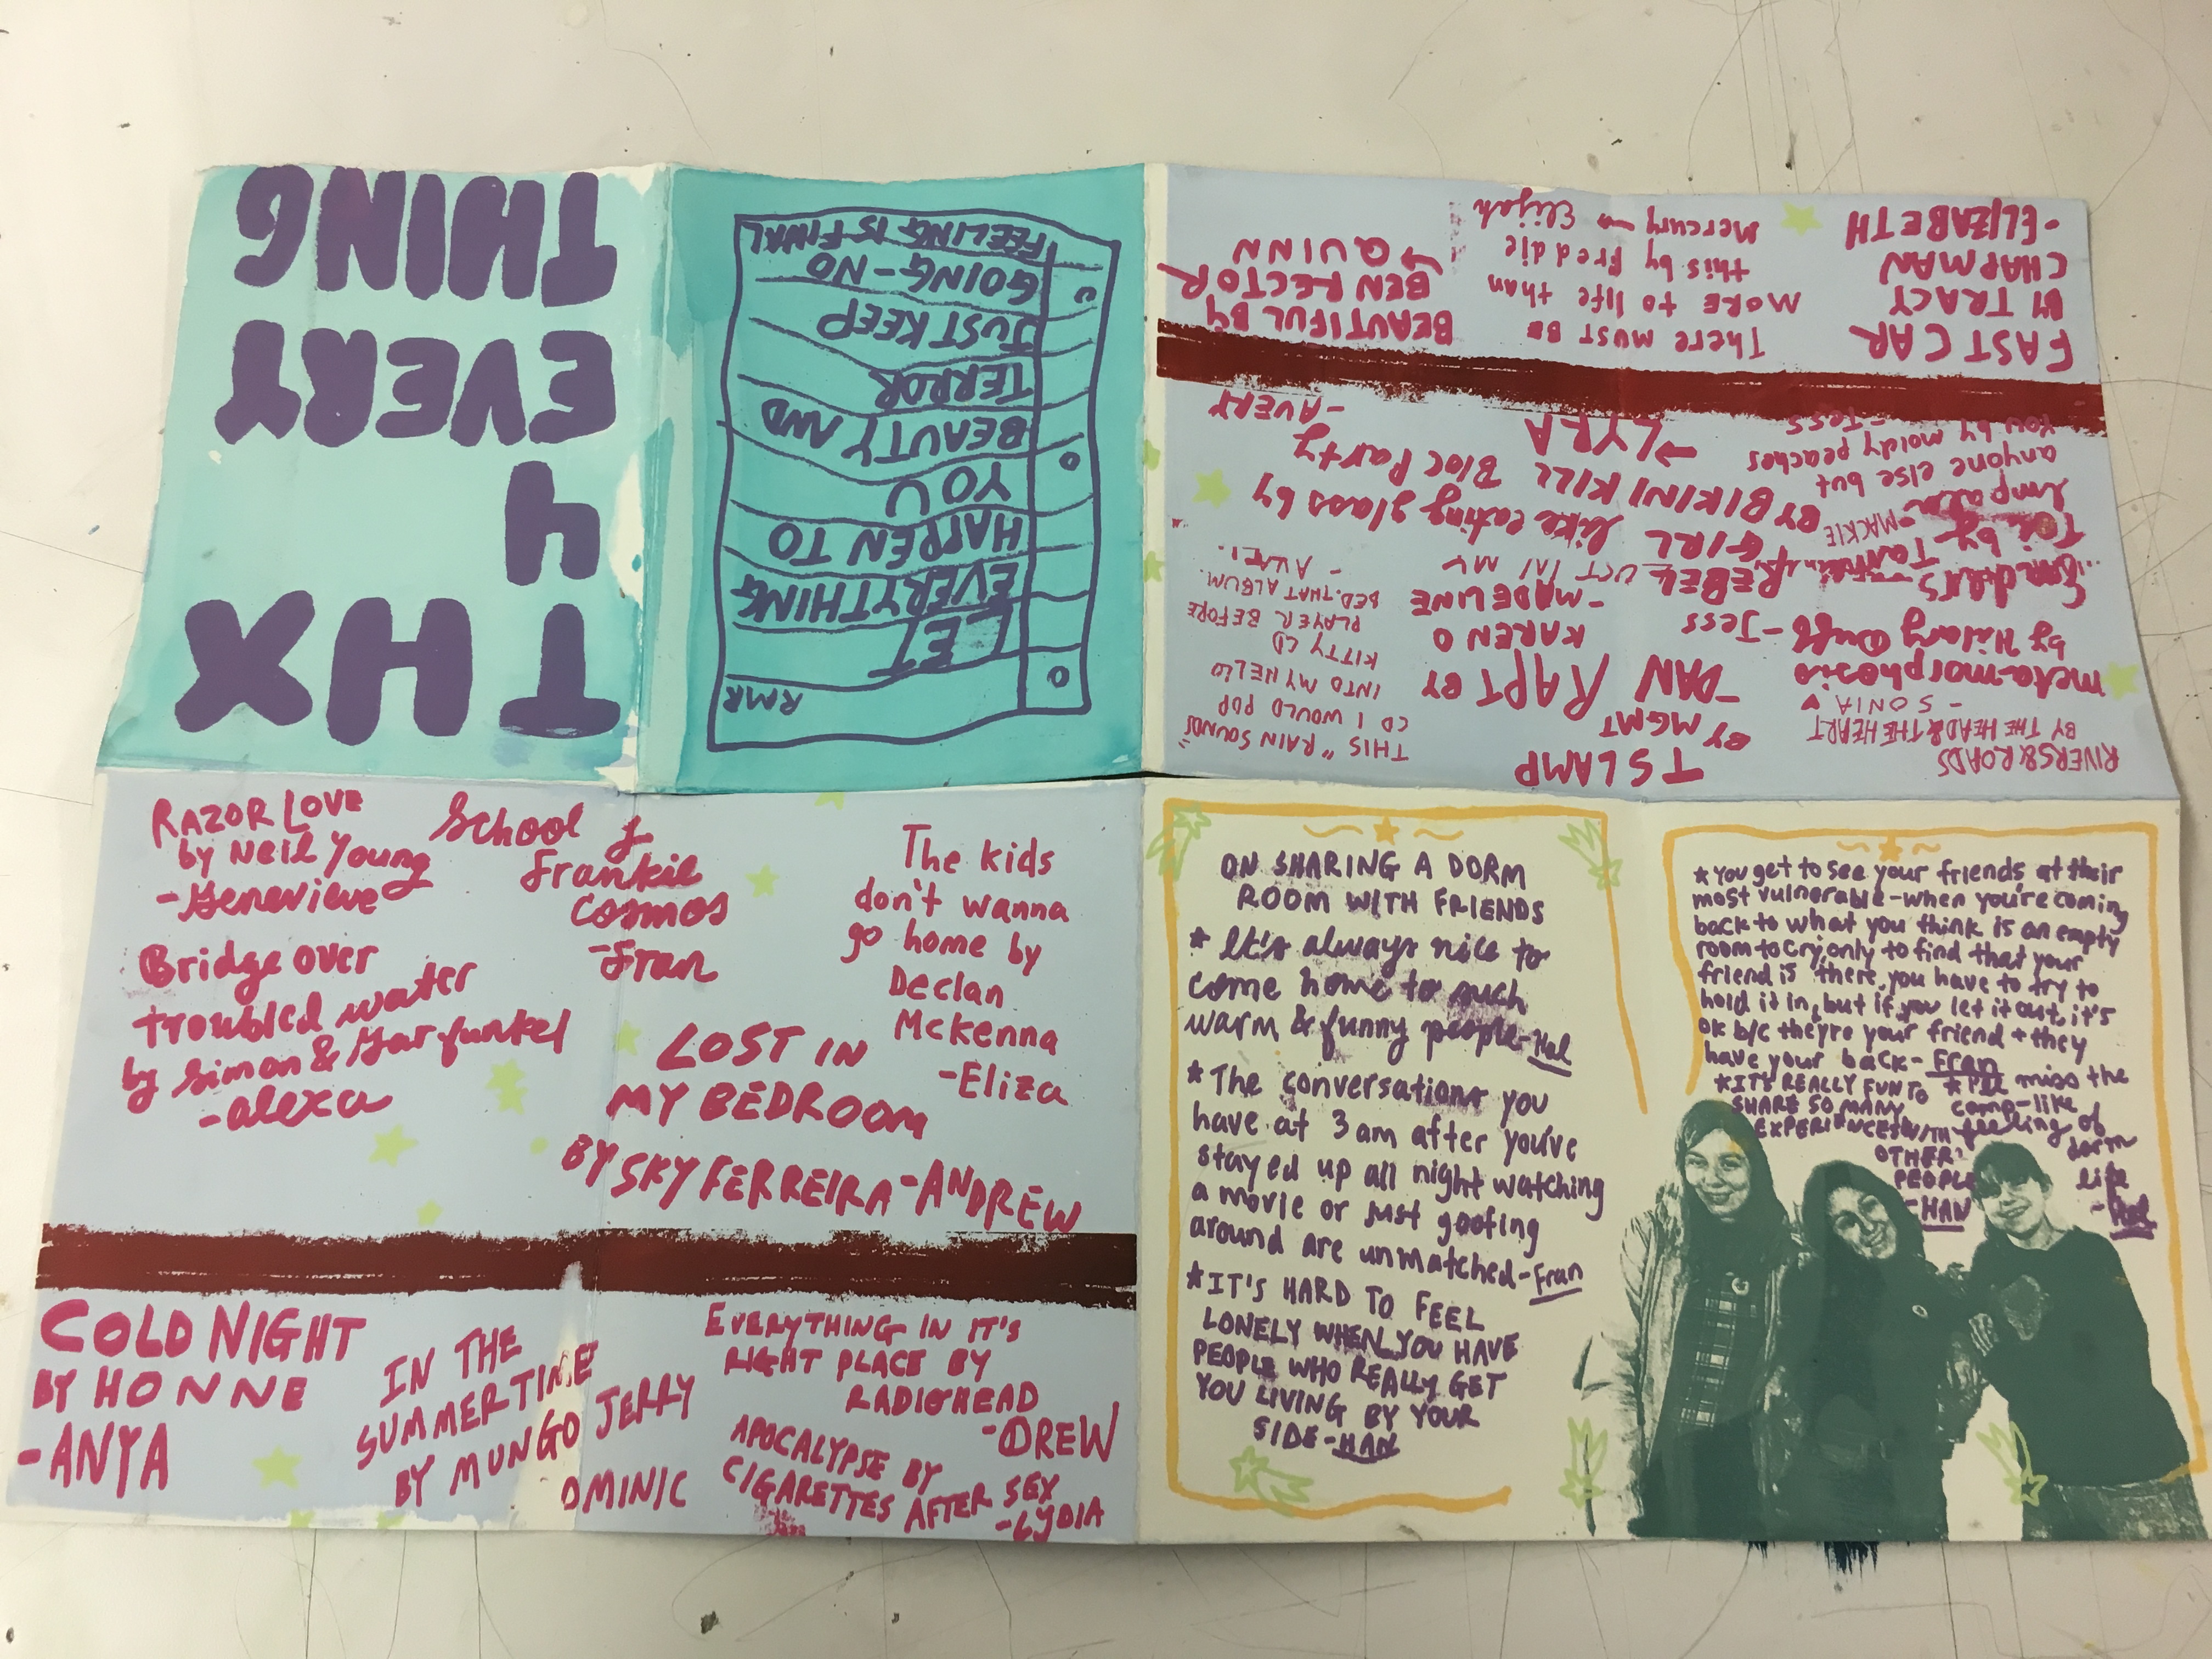 THX
4
EVERY
THING
RMR
LET
EVERYTHING
HAPPEN TO
YOU
BEAUTY AND
TERROR
JUST KEEP
GOING-NO
FEELING IS FINAL
RIVERS & ROADS
BY THE HEAD & THE HEART
- SONIA
metamorphosis
by Hilary Duff - Jess
TSLAMP
BY MGMT
-DAN
RAPT BY
KAREN O
-MADELINE
THIS "RAIN SOUNDS"
CD I WOULD POP
INTO MY HELLO
KITTY CD
PLAYER BEFORE
BED. THAT ALBUM.
REBEL GIRL
BY BIKINI KILL
→LYRA
like eating glass by
Bloc Party
-AVERY
-MACKIE
anyone else but
you by moldy peaches
-Tess
FAST CAR
BY TRACY
CHAPMAN
-ELIZABETH
There must be
more to life than
this by Freddie
Mercury → Elijah
BEAUTIFUL BY
BEN RECTOR
→QUINN
RAZOR LOVE
by Neil Young
-Genevieve
School of
Frankie
Cosmos
-Fran
The kids
don't wanna
go home by
Declan
Mckenna
-Eliza
Bridge over
troubled water
by Simon & Garfunkel
-alexa
LOST IN
MY BEDROOM
BY SKY FERREIRA-ANDREW
COLD NIGHT
BY HONNE
-ANYA
IN THE
SUMMERTIME
BY MUNGO JERRY
OMINIC
EVERYTHING IN IT'S
RIGHT PLACE BY
RADIOHEAD
-DREW
APOCALYPSE BY
CIGARETTES AFTER SEX
-LYDIA
ON SHARING A DORM
ROOM WITH FRIENDS
* It's always nice to
come home to such
warm & funny people-Hal
* The conversations you
have at 3am after you've
stayed up all night watching
a movie or just goofing
around are unmatched-Fran
* IT'S HARD TO FEEL
LONELY WHEN YOU HAVE
PEOPLE WHO REALLY GET
YOU LIVING BY YOUR
SIDE-HAN
* You get to see your friends at their
most vulnerable-when you're coming
back to what you think is an empty
room to cry, only to find that your
friend is there, you have to try to
hold it in, but if you let it out, it's
ok b/c they're your friend + they
have your back-Fran
* IT'S REALLY FUN TO
SHARE SO MANY
EXPERIENCES WITH
OTHER
PEOPLE
-HAN
* I'll miss the
camp-like
feeling of
dorm
life
-Hal